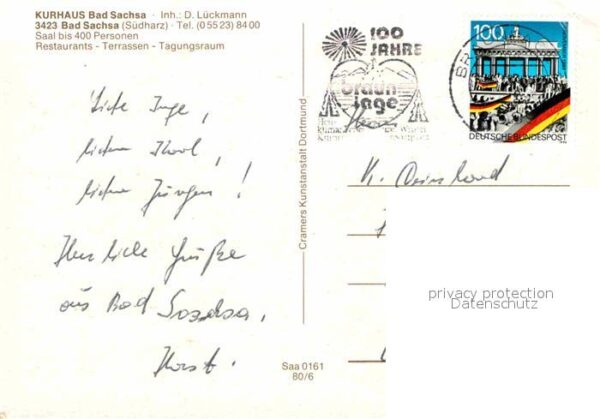 KURHAUS Bad Sachsa · Inh.: D. Lückmann
3423 Bad Sachsa (Südharz) · Tel. (0 55 23) 84 00
Saal bis 400 Personen
Restaurants - Terrassen - Tagungsraum
Liebe Inge,
lieber Karl,
lieber Jürgen!
Herzliche Grüße
aus Bad Sachsa,
Horst.
Saa 0161
80/6
Cramers Kunstanstalt Dortmund
100
JAHRE
braun
lage
100
DEUTSCHE BUNDESPOST
K.
privacy protection
Datenschutz